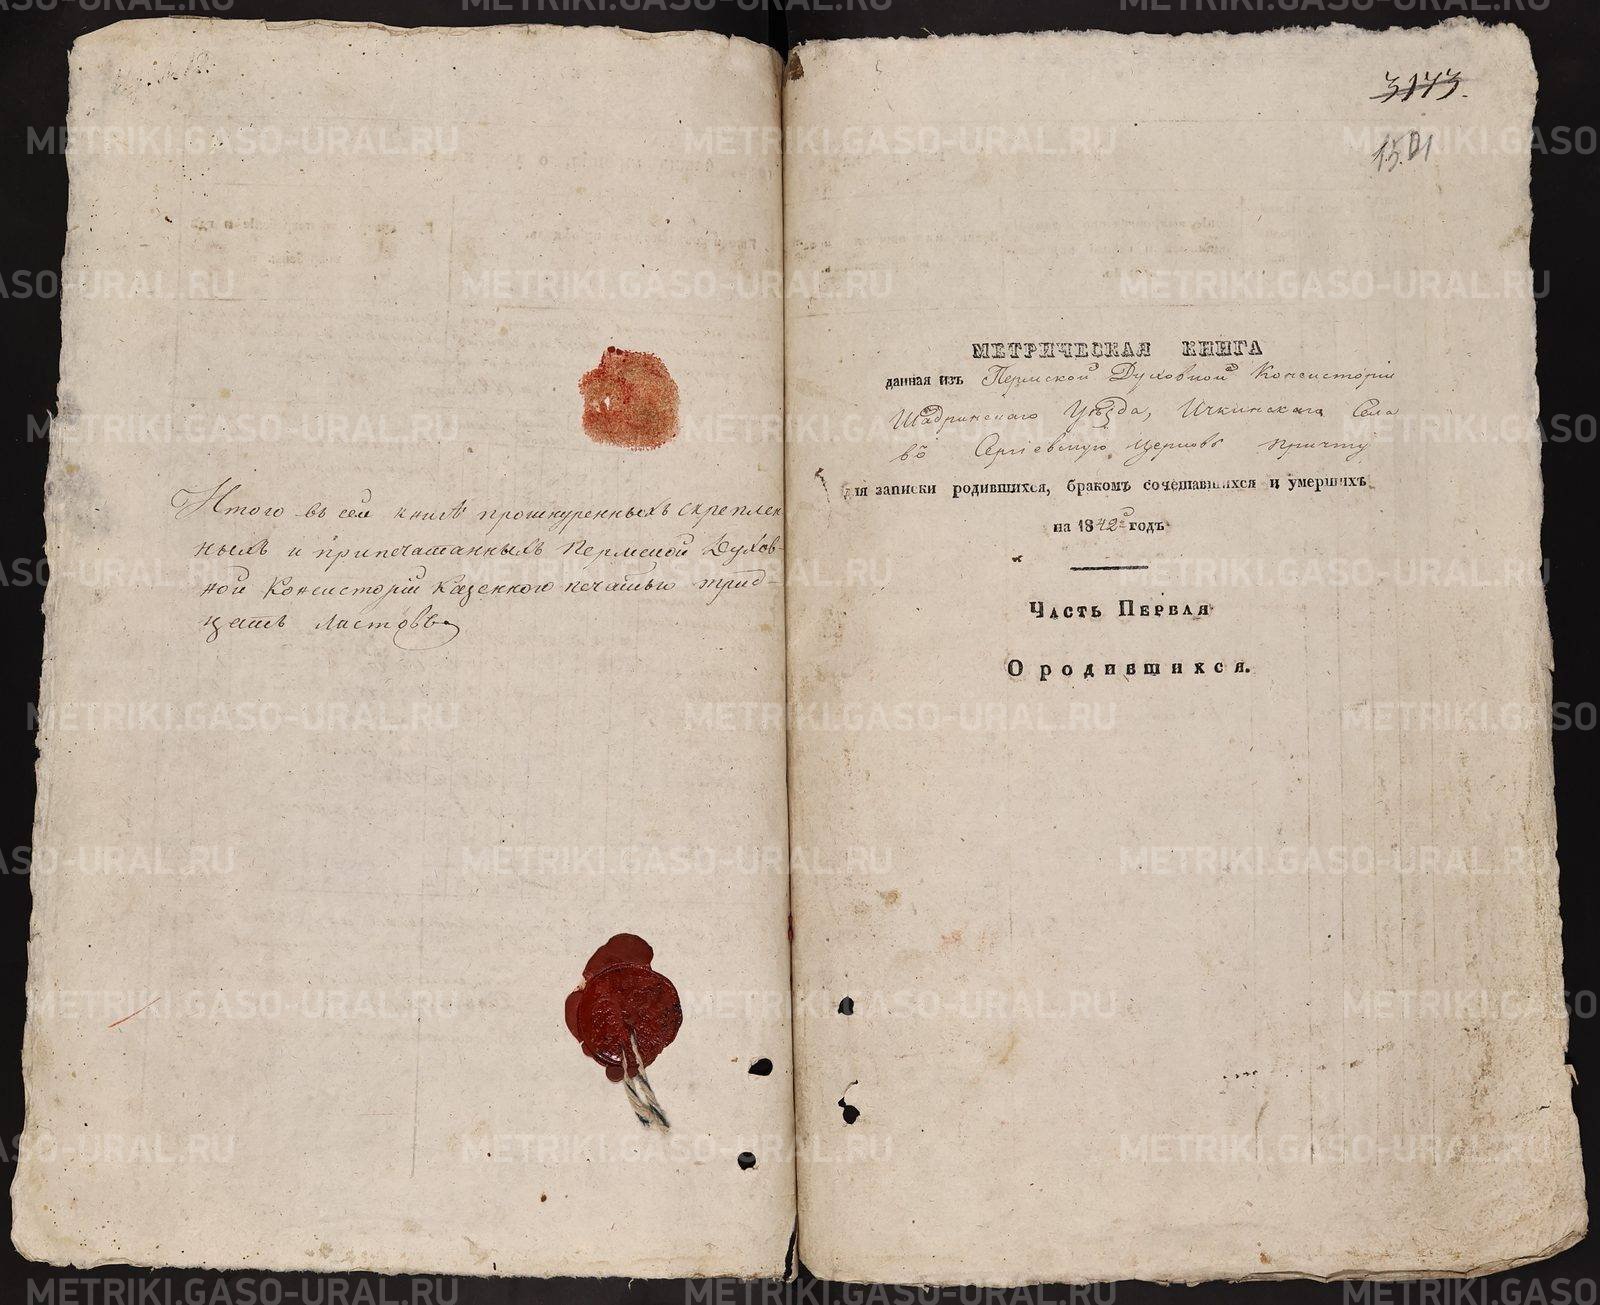 Итого въ сей книгѣ прошнуренныхъ скреплен
ныхъ и припечатанныхъ Пермской Духов-
ной Консисторіи казенною печатью трид-
цать листовъ
3173.
МЕТРИЧЕСКАЯ КНИГА
данная изъ Пермской Духовной Консисторіи
Шадринскаго Уѣзда, Ичкинскаго Села
въ Сергіевскую церковь причту
для записки родившихся, бракомъ сочетавшихся и умершихъ
на 1842й годъ
Часть Первая
О родившихся.
METRIKI.GASO-URAL.RU